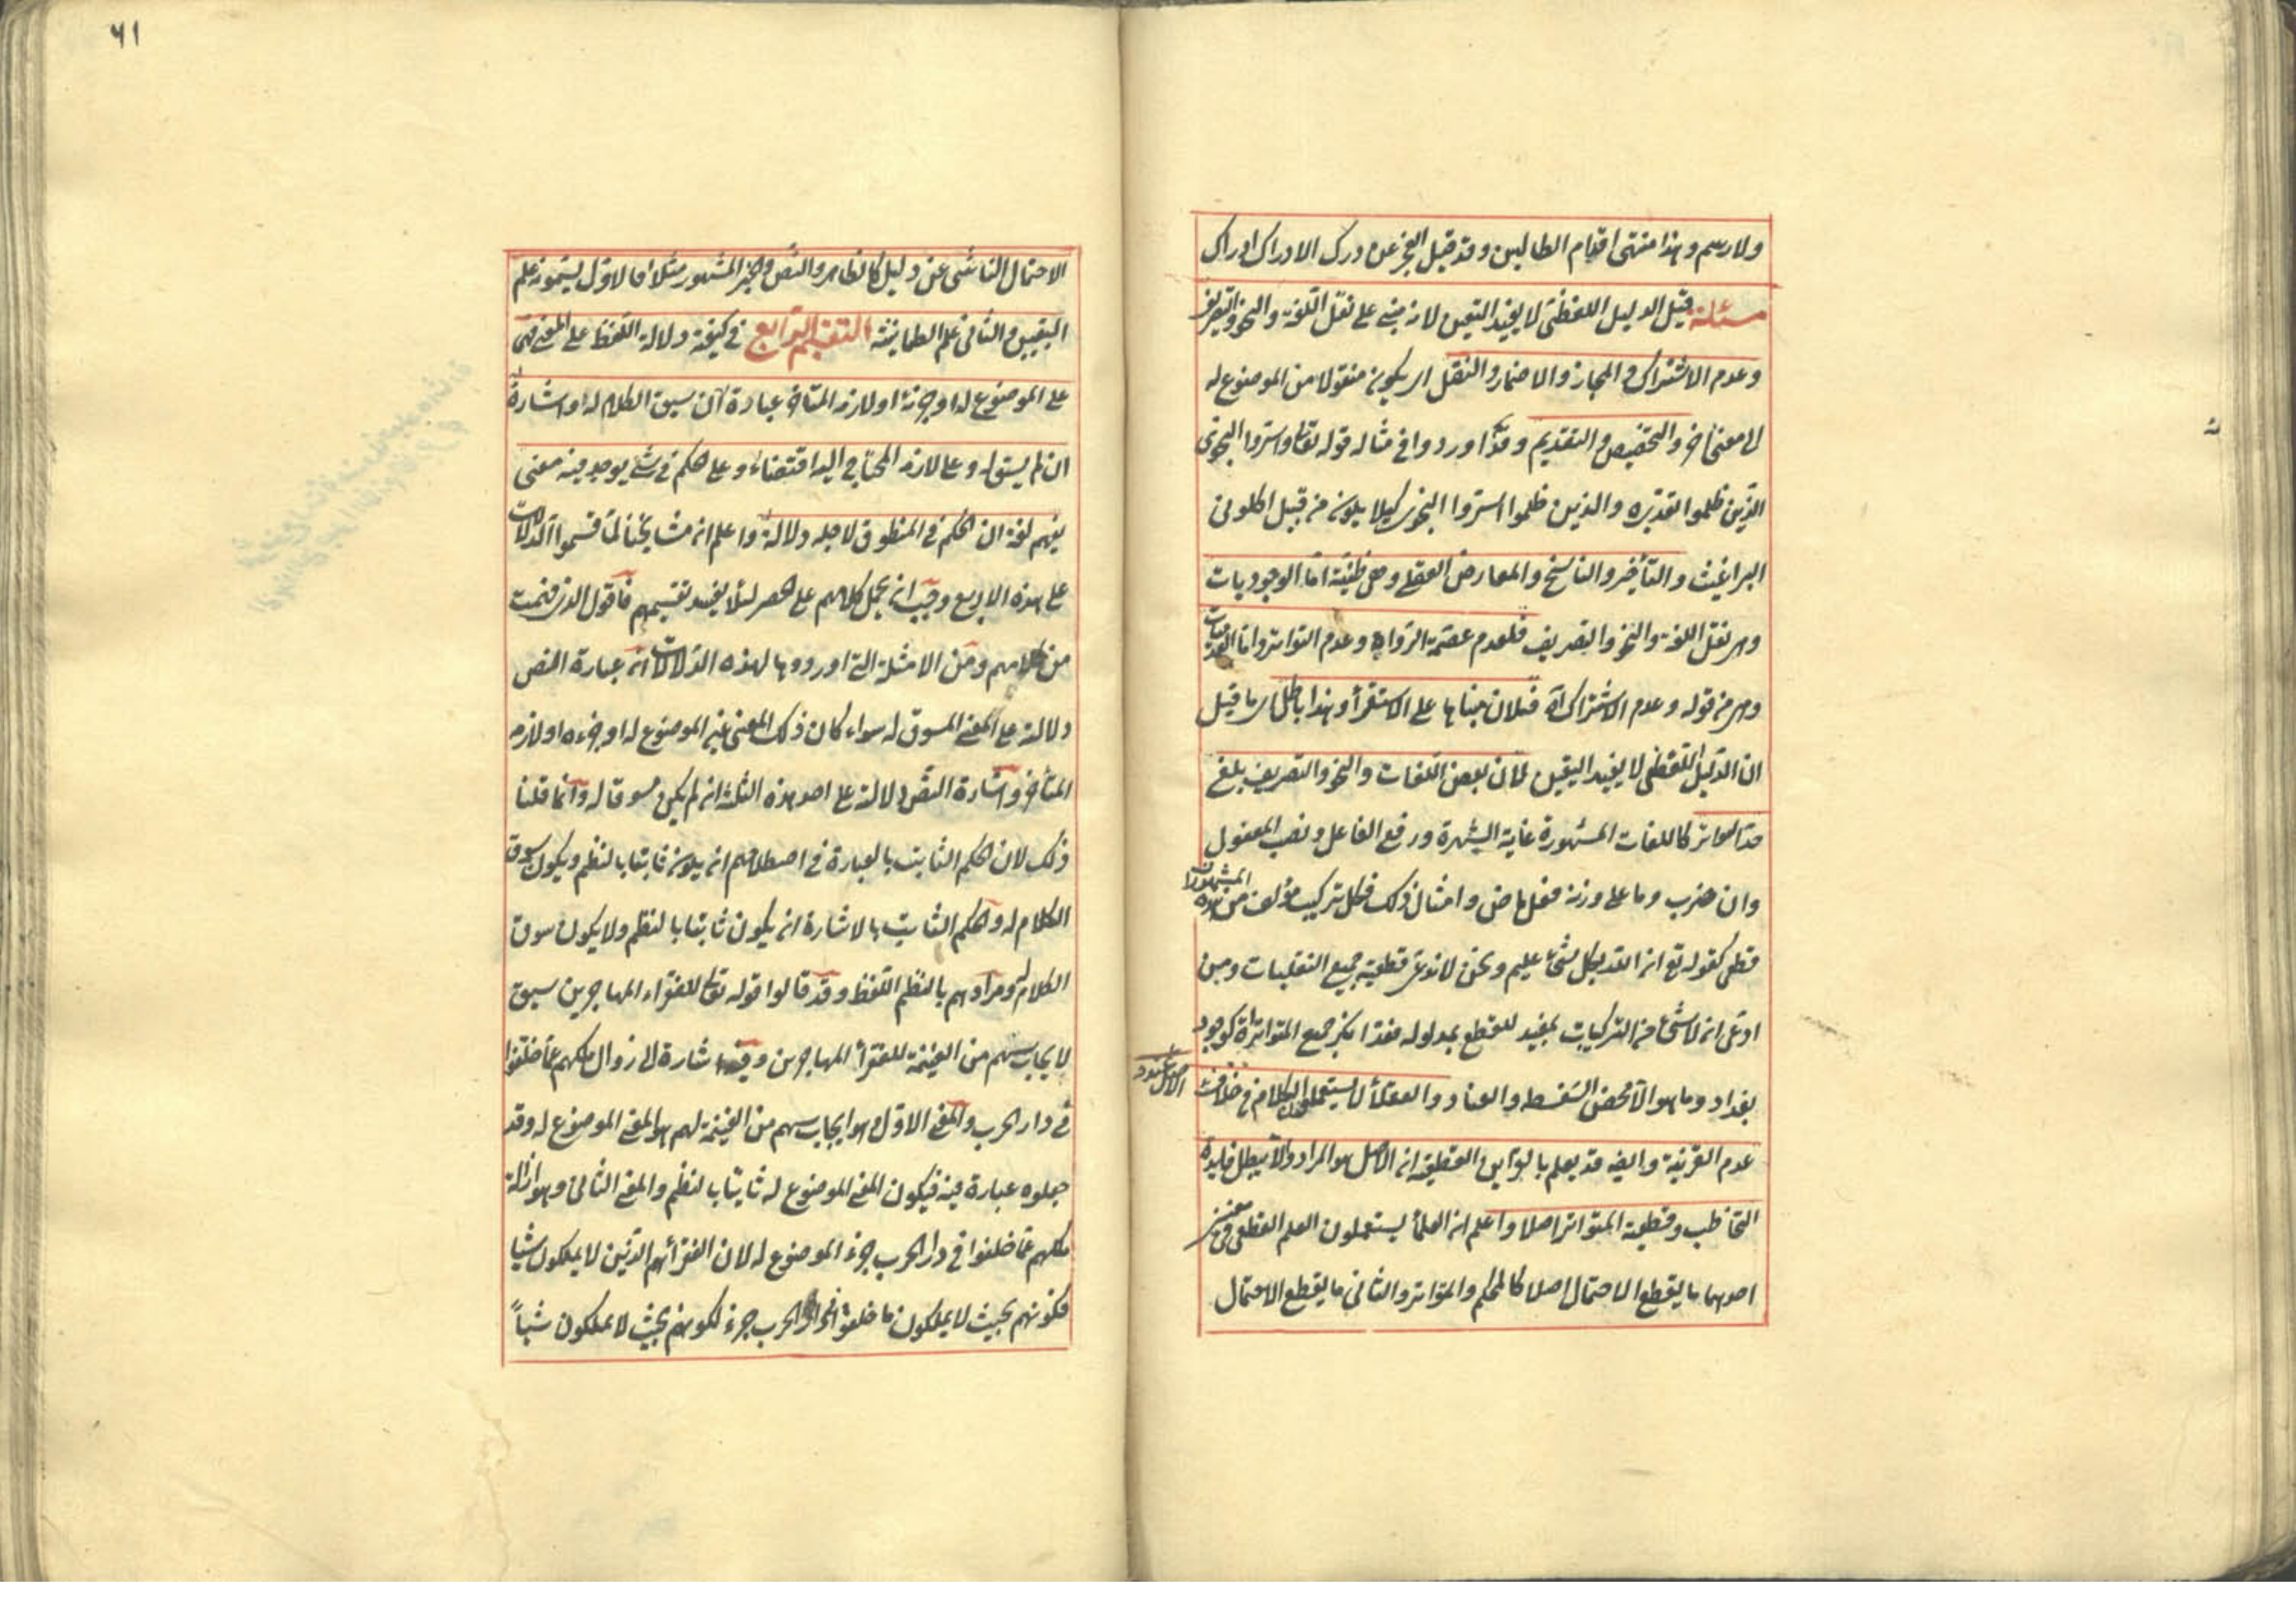 ولا رسم وهذا منتهى اقدام الطالبين وقد قيل العجز عن درك الادراك ادراك
مسئلة قيل الدليل اللفظى لا يفيد اليقين لانه مبنى على نقل اللغة والنحو والتصريف
وعدم الاشتراك والمجاز والاضمار والنقل اى يكون منقولا من الموضوع له
الى معنى آخر والتخصيص والتقديم وقد اوردوا فى مثاله قوله تعالى واسروا النجوى
الذين ظلموا تقديره والذين ظلموا اسروا النجوى كيلا يكون من قبيل اكلونى
البراغيث والتأخير والناسخ والمعارض العقلى وهى ظنية اما الوجوديات
وهى نقل اللغة والنحو والتصريف فلعدم عصمة الرواة وعدم التواتر واما العدميات
وهى من قوله وعدم الاشتراك آه فلان مبناها على الاستقرأ وهذا باطل اى ما قيل
ان الدليل اللفظى لا يفيد اليقين لان بعض اللغات والنحو والتصريف بلغ
حد التواتر كاللغات المشهورة غاية الشهرة ورفع الفاعل ونصب المفعول
وان ضرب وما على وزنه فعل ماض وامثال ذلك فكل تركيب مؤلف من هذه المشهورات
قطعى كقوله تع ان الله بكل شئ عليم ونحن لا ندعى قطعية جميع النقليات ومن
ادعى ان لا شئ من التركيبات بمفيد للقطع بمدلوله فقد انكر جميع المتواترات كوجود
بغداد وما هو الا محض السفسطه والعناد والعقلأ لا يستعملون الكلام فى خلاف الاصل عند
عدم القرينة وايضا قد يعلم بالقراين القطعية ان الاصل هو المراد والا يبطل فايدة
التخاطب وقطعية المتواتر اصلا واعلم ان العلمأ يستعملون العلم القطعى فى معنيين
احدهما ما يقطع الاحتمال اصلا كالمحكم والمتواتر والثانى ما يقطع الاحتمال
٦١
الاحتمال الناشئ عن دليل كالظاهر والنص والخبر المشهور مثلا فالاول يسمونه علم
اليقين والثانى علم الطمانينة التقسيم الرابع فى كيفية دلالة اللفظ على المعنى فهى
على الموضوع له او جزئه او لازمه المتاخر عبارة ان سيق الكلام له واشارة
ان لم يسق له وعلى لازمه المحتاج اليه اقتضاء وعلى الحكم فى شئ يوجد فيه معنى
يفهم لغة ان الحكم فى المنطوق لاجله دلالة واعلم ان مشايخنا لما قسموا الدلالات
على هذه الاربع وجب ان يحمل كلامهم على الحصر لئلا يفسد تقسيمهم فاقول الذى فهمت
من كلامهم ومن الامثلة التى اوردوها لهذه الدلالات ان عبارة النص
دلالته على المعنى المسوق له سواء كان ذلك المعنى عين الموضوع له او جزءه او لازمه
المتأخر واشارة النص دلالته على احد هذه الثلثة ان لم يكن مسوقا له وانما قلنا
ذلك لان الحكم الثابت بالعبارة فى اصطلاحهم ان يكون ثابتا بالنظم ويكون سوق
الكلام له والحكم الثابت بالاشارة ان يكون ثابتا بالنظم ولا يكون سوق
الكلام له ومرادهم بالنظم اللفظ وقد قالوا قوله تعالى للفقراء المهاجرين سيق
لايجاب سهم من الغنيمة للفقرأ المهاجرين وفيه اشارة الى زوال ملكهم عما خلفوا
فى دار الحرب والمعنى الاول وهو ايجاب سهم من الغنيمة لهم هو المعنى الموضوع له وقد
جعلوه عبارة فيه فيكون المعنى الموضوع له ثابتا بالنظم والمعنى الثانى وهو ازالة
ملكهم عما خلفوا فى دار الحرب جزء الموضوع له لان الفقرأ هم الذين لا يملكون شيئا
فكونهم بحيث لا يملكون ما خلفوا فى دار الحرب جزء لكونهم بحيث لا يملكون شيئا